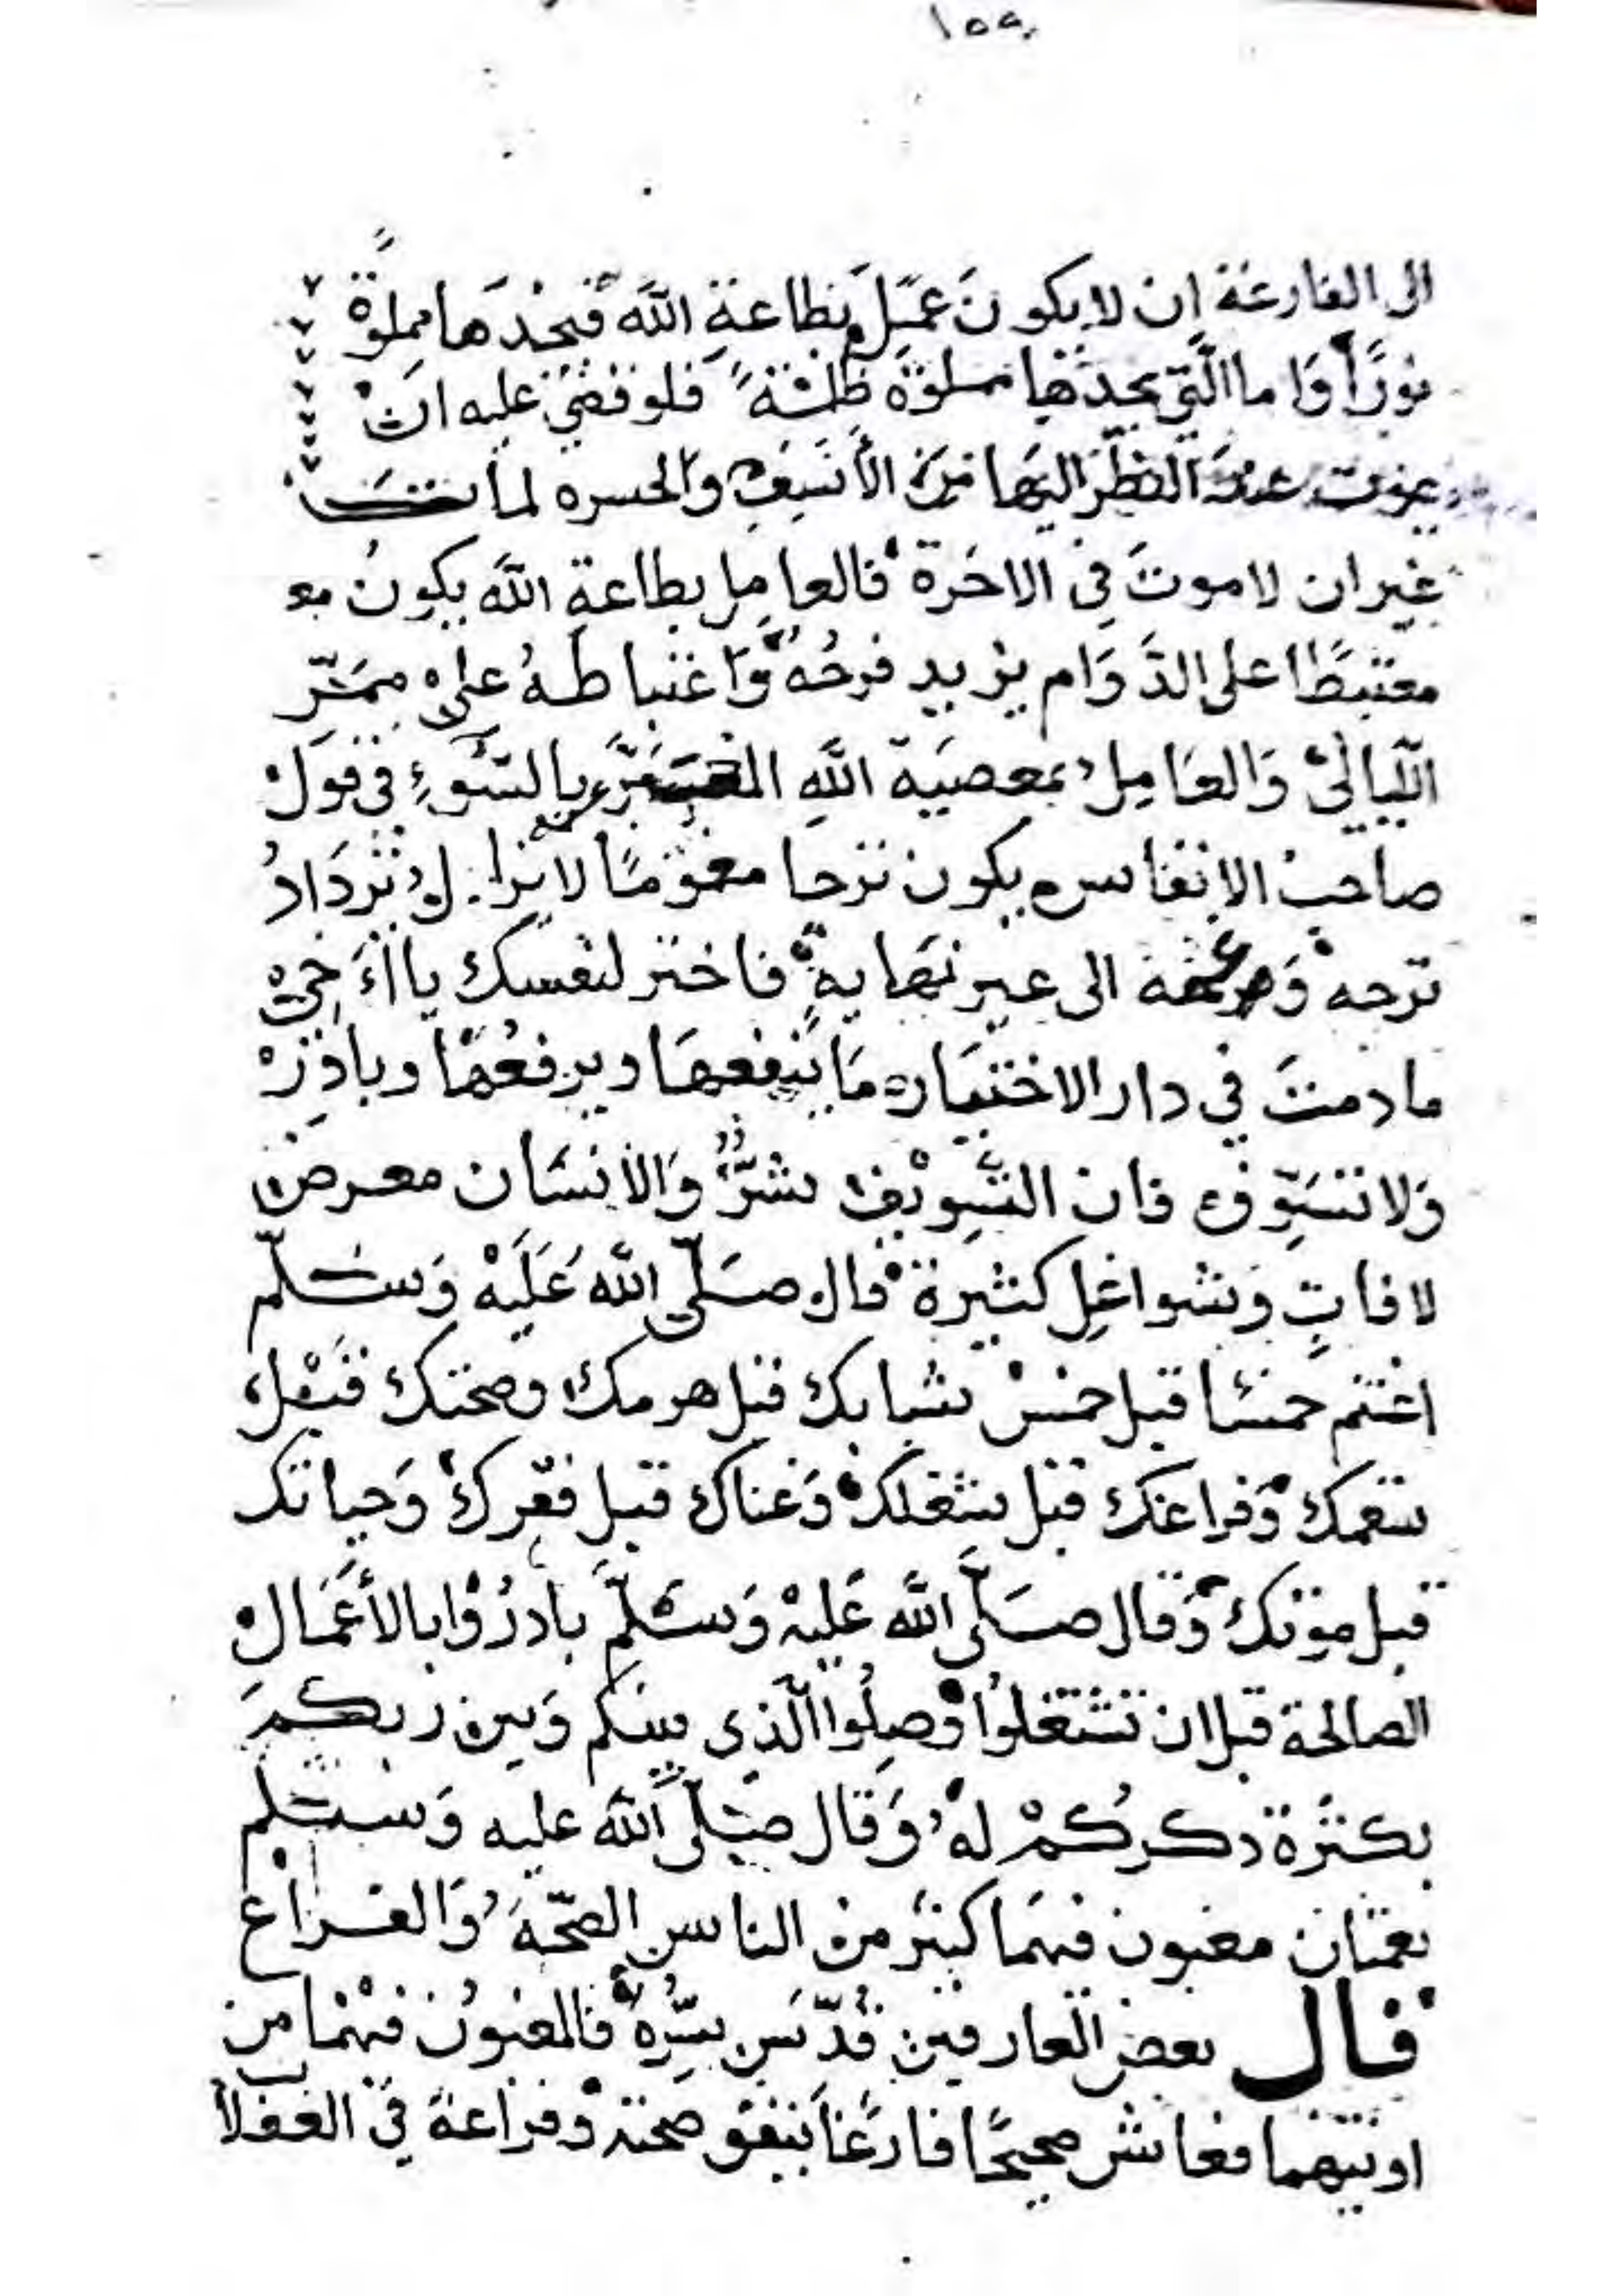 ١٥٥
الى الفارغة ان لا يكونَ عَمِلَ بطاعةِ اللّه فيجدَها مملوّةً
نورًا وَاما الّتي يجدها مملوّة ظلمةً فلو قضي عليه انْ
يموت عندَ النظرَ اليهَا مِنَ الأَسَفِ والحسره لمات
غير ان لا موتَ فى الاخرة فالعامِل بطاعةِ اللّه يكونُ
مغتبطًا على الدَّوَام يزيد فرحُه وَاغتباطهُ على ممَرّ
اللّيالىْ وَالعَامِل بمعصيَة اللّهِ بالسّوءِ فى قول
صاحب الانفاس يكون ترحا مغمومًا لا يزال تزدَادُ
ترحه وَغمه الى غير نهايةٍ فاختر لنفسك يا أَخىْ
ما دمتَ في دار الاختيار مَا ينفعهَا ويرفعُها وبادِرْ
وَلا تسَوِّف فان التّسويْف شرٌّ وَالأنسَان معرض
لافاتٍ وَشواغِل كثيرة قال صَلّى اللّه عَلَيْه وَسَلّم
اغتنم خمسًا قبل خمسْ شبابك قبل هرمك وصحتك قَبْل
سقمك وَفراغك قبل شغلكْ وَغناك قبل فقركْ وَحياتك
قبل موتك وَقال صَلّى اللّه عَليْه وَسَلّمَ بادرُوْا بالأعْمَال
الصالحة قبل ان تَشتغلوُا وَصِلُوا الّذى بينكم وَبين ربكمَ
بكثرَة ذكركُمْ لهُ وَقال صَلّى اللّه عليه وَسَلّم
نعمتان مغبون فيهمَا كثير منْ الناس الصّحّةُ وَالفَراغ
قال بعض العارفين قُدّسَ سِرُّه فالمغبوُن فيْهما من
اوتيهما فعاش صحيحًا فارغًا ينفق صحته وفراغه في الغفلا